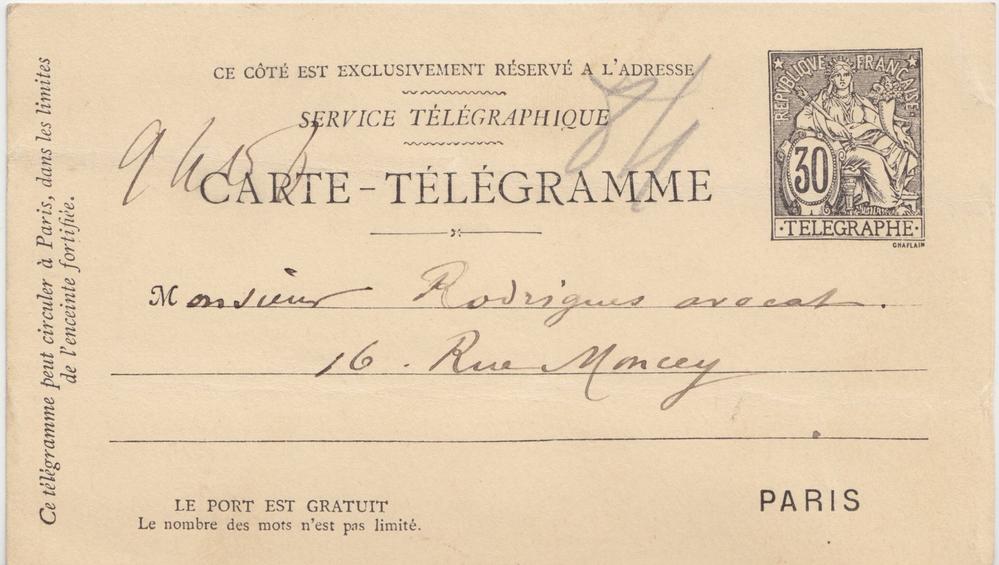 CE CÔTÉ EST EXCLUSIVEMENT RÉSERVÉ A L'ADRESSE
SERVICE TÉLÉGRAPHIQUE
CARTE-TÉLÉGRAMME
REPUBLIQUE FRANCAISE
30
TELEGRAPHE
CHAPLAIN
Monsieur Rodrigues avocat.
16. Rue Moncey
PARIS
LE PORT EST GRATUIT
Le nombre des mots n'est pas limité.
Ce télégramme peut circuler à Paris, dans les limites
de l'enceinte fortifiée.